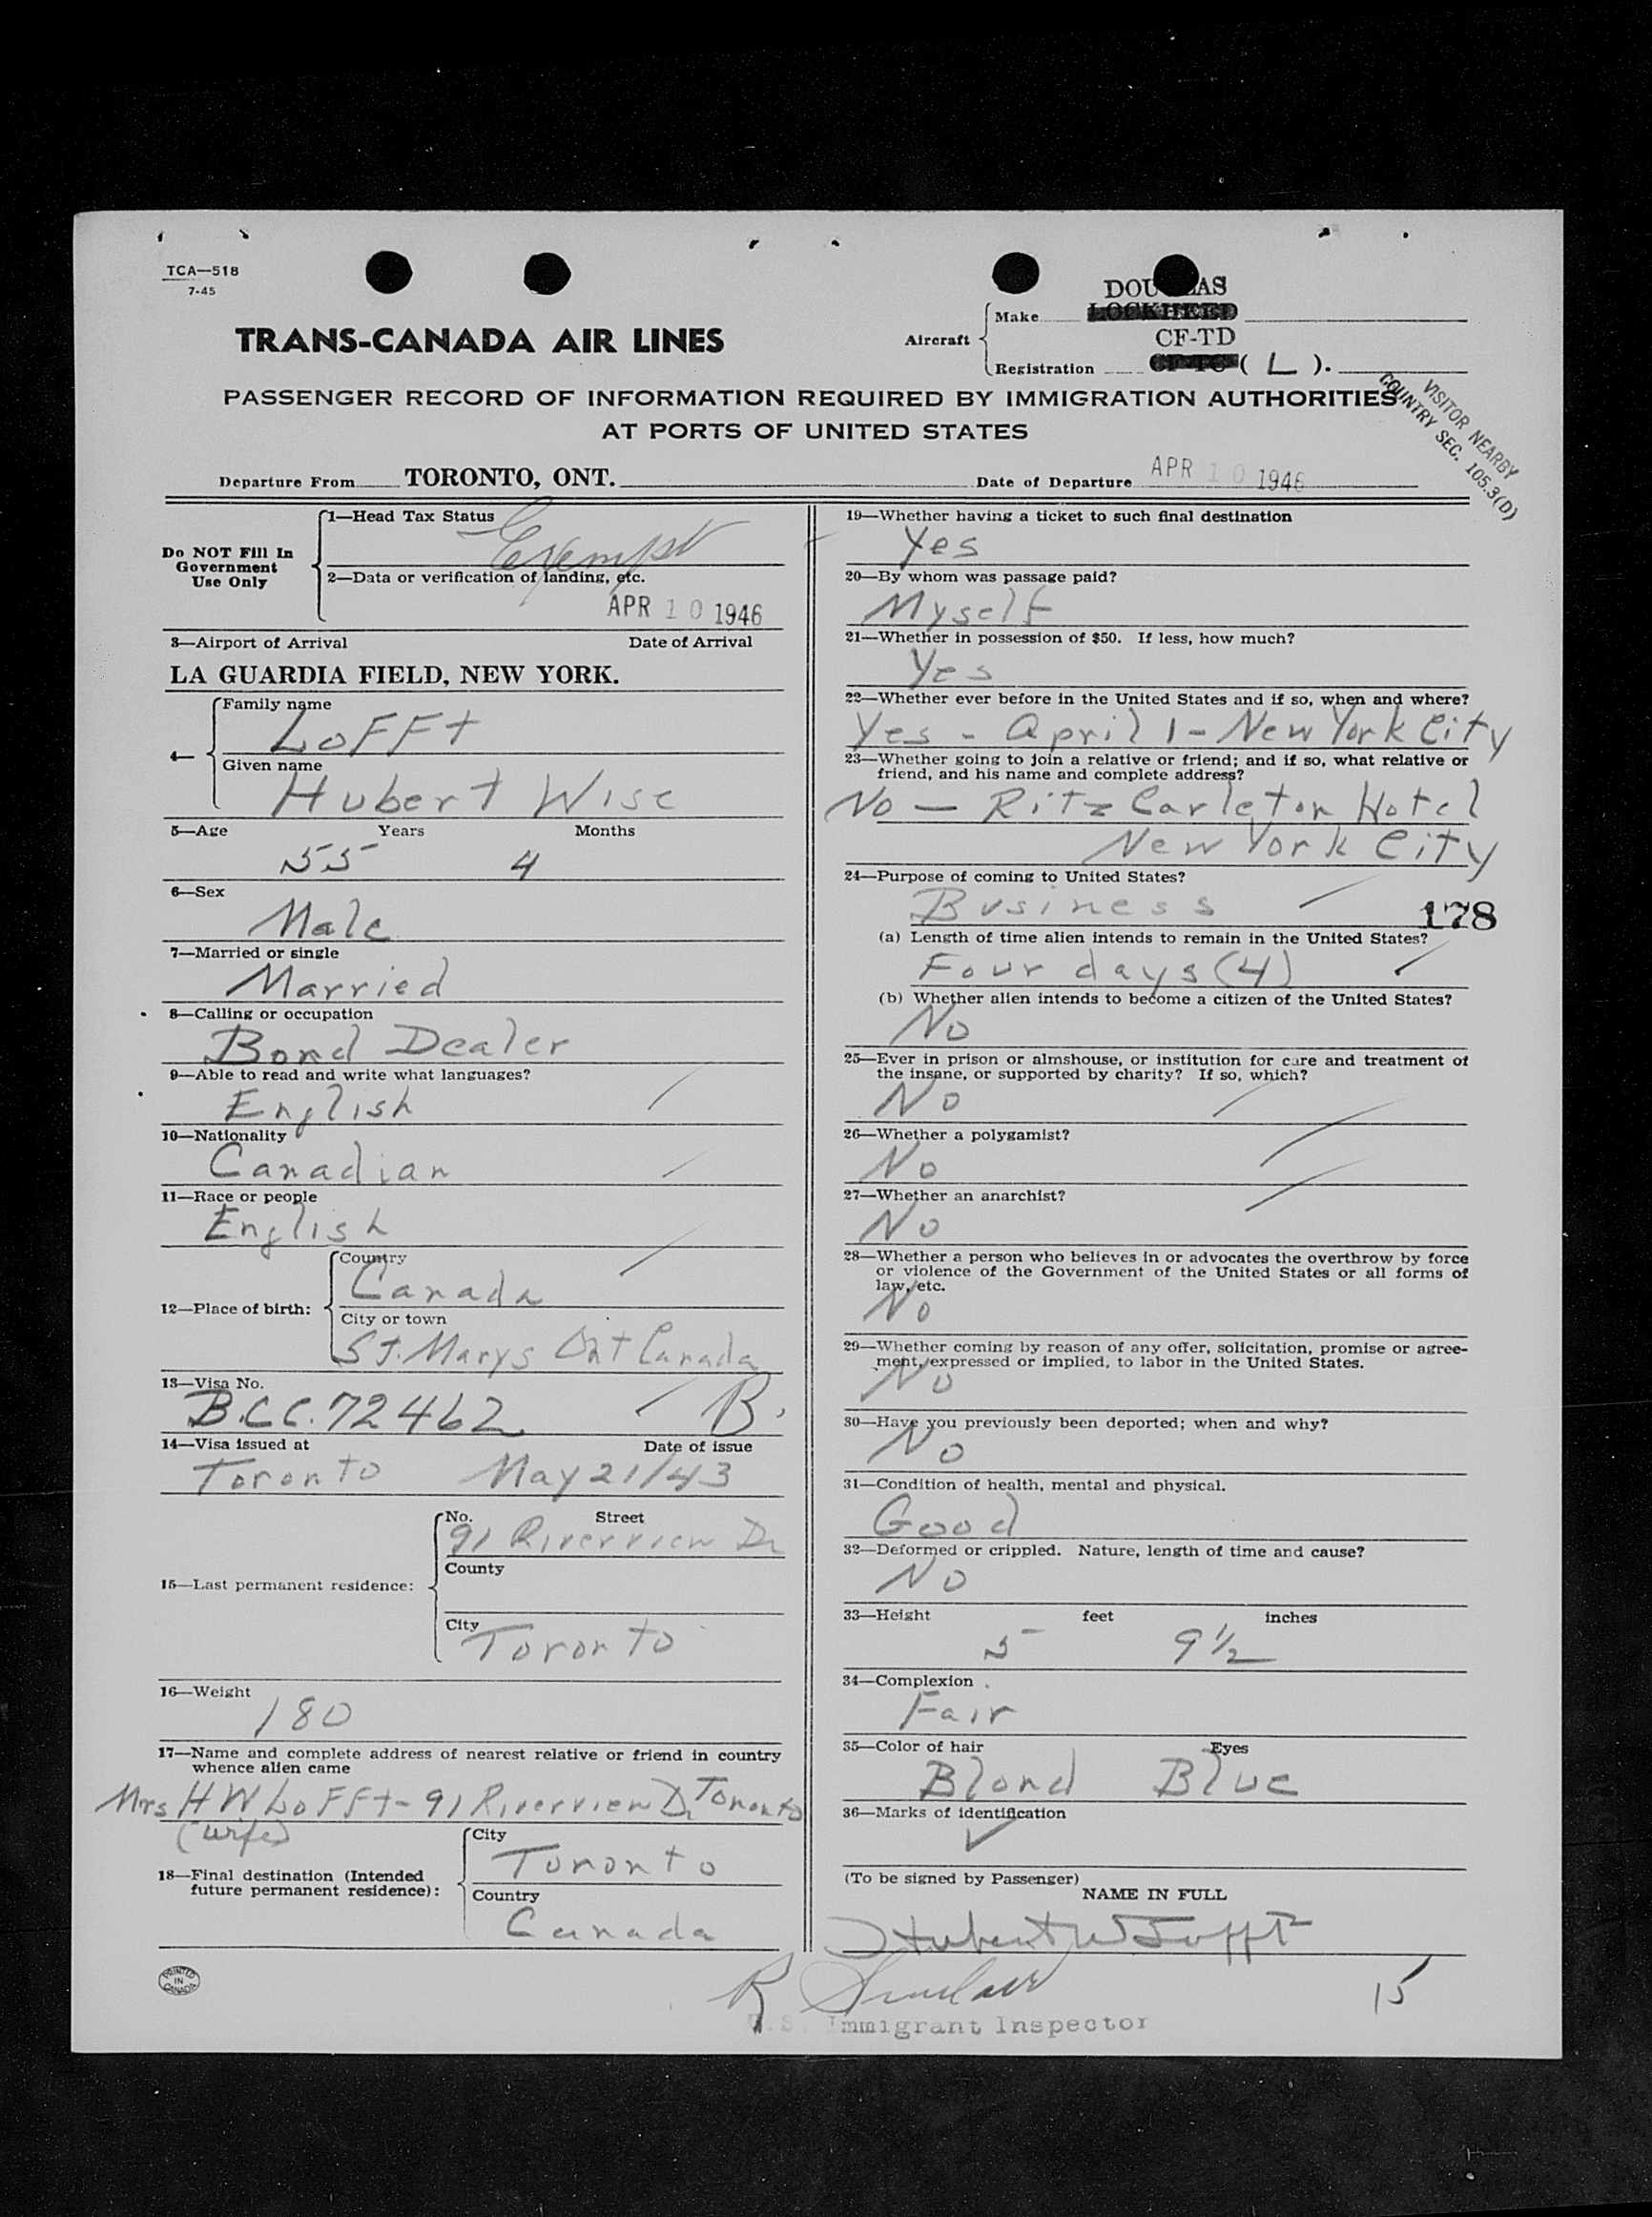 TCA—518
7-45
DOUGLAS
Make LOCKHEED
TRANS-CANADA AIR LINES
Aircraft
CF-TD
Registration CF-TC ( L ).
PASSENGER RECORD OF INFORMATION REQUIRED BY IMMIGRATION AUTHORITIES
AT PORTS OF UNITED STATES
VISITOR NEARBY
COUNTRY SEC. 105.3(D)
Departure From TORONTO, ONT.
Date of Departure APR 10 1946
Do NOT Fill In
Government
Use Only
1—Head Tax Status
Exempt
2—Data or verification of landing, etc.
APR 10 1946
3—Airport of Arrival Date of Arrival
LA GUARDIA FIELD, NEW YORK.
4—
Family name
LoFFt
Given name
Hubert Wise
5—Age Years Months
55 4
6—Sex
Male
7—Married or single
Married
8—Calling or occupation
Bond Dealer
9—Able to read and write what languages?
English
10—Nationality
Canadian
11—Race or people
English
12—Place of birth:
Country
Canada
City or town
St. Marys Ont Canada
13—Visa No.
B.C.C. 72462 B.
14—Visa issued at Date of issue
Toronto May 21/43
15—Last permanent residence:
No. Street
91 Riverview Dr
County
City
Toronto
16—Weight
180
17—Name and complete address of nearest relative or friend in country
whence alien came
Mrs H W LoFFt - 91 Riverview Dr Toronto
(wife)
18—Final destination (Intended
future permanent residence):
City
Toronto
Country
Canada
PRINTED
IN
CANADA
19—Whether having a ticket to such final destination
Yes
20—By whom was passage paid?
Myself
21—Whether in possession of $50. If less, how much?
Yes
22—Whether ever before in the United States and if so, when and where?
Yes - April 1 - New York City
23—Whether going to join a relative or friend; and if so, what relative or
friend, and his name and complete address?
No — Ritz Carleton Hotel
New York City
24—Purpose of coming to United States?
Business
178
(a) Length of time alien intends to remain in the United States?
Four days (4)
(b) Whether alien intends to become a citizen of the United States?
No
25—Ever in prison or almshouse, or institution for care and treatment of
the insane, or supported by charity? If so, which?
No
26—Whether a polygamist?
No
27—Whether an anarchist?
No
28—Whether a person who believes in or advocates the overthrow by force
or violence of the Government of the United States or all forms of
law, etc.
No
29—Whether coming by reason of any offer, solicitation, promise or agree-
ment, expressed or implied, to labor in the United States.
No
30—Have you previously been deported; when and why?
No
31—Condition of health, mental and physical.
Good
32—Deformed or crippled. Nature, length of time and cause?
No
33—Height feet inches
5 9½
34—Complexion
Fair
35—Color of hair Eyes
Blond Blue
36—Marks of identification
(To be signed by Passenger)
NAME IN FULL
Hubert W Lofft
R Sinclair
15
U.S. Immigrant Inspector